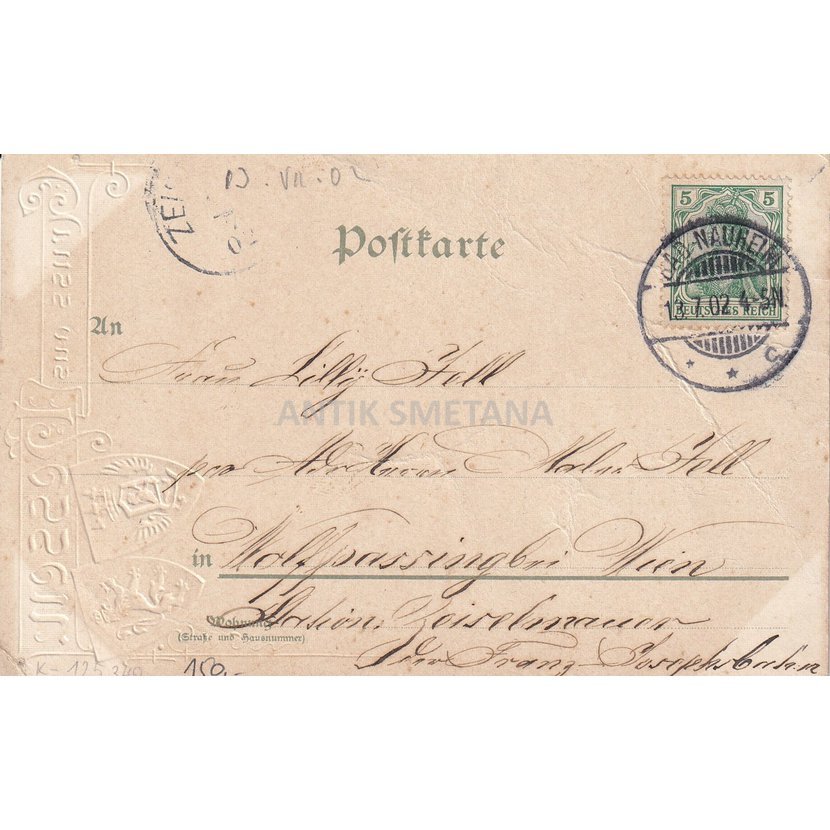 13.VII.02
ZEI
02
Postkarte
5 5
DEUTSCHES REICH
BAD-NAUHEIM
13.7.02 4-5N.
* *
An
Frau Lilly Fell
ANTIK SMETANA
per Adr Herrn Fell
in Wolfpassing bei Wien
Wohnung
(Straße und Hausnummer)
Station Zeiselmauer
der Franz-Josephsbahn
K-125340
150,-
Gruss aus